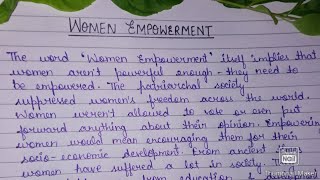 WOMEN EMPOWERMENT
The word "Women Empowerment" itself implies that
women aren't powerful enough - they need to
be empowered. The patriarchal society
suppressed women's freedom across the world.
Women weren't allowed to vote or even put
forward anything about their opinion. Empowering
women would mean encouraging them for their
socio-economic development. From ancient
women have suffered a lot in society. T
from education &